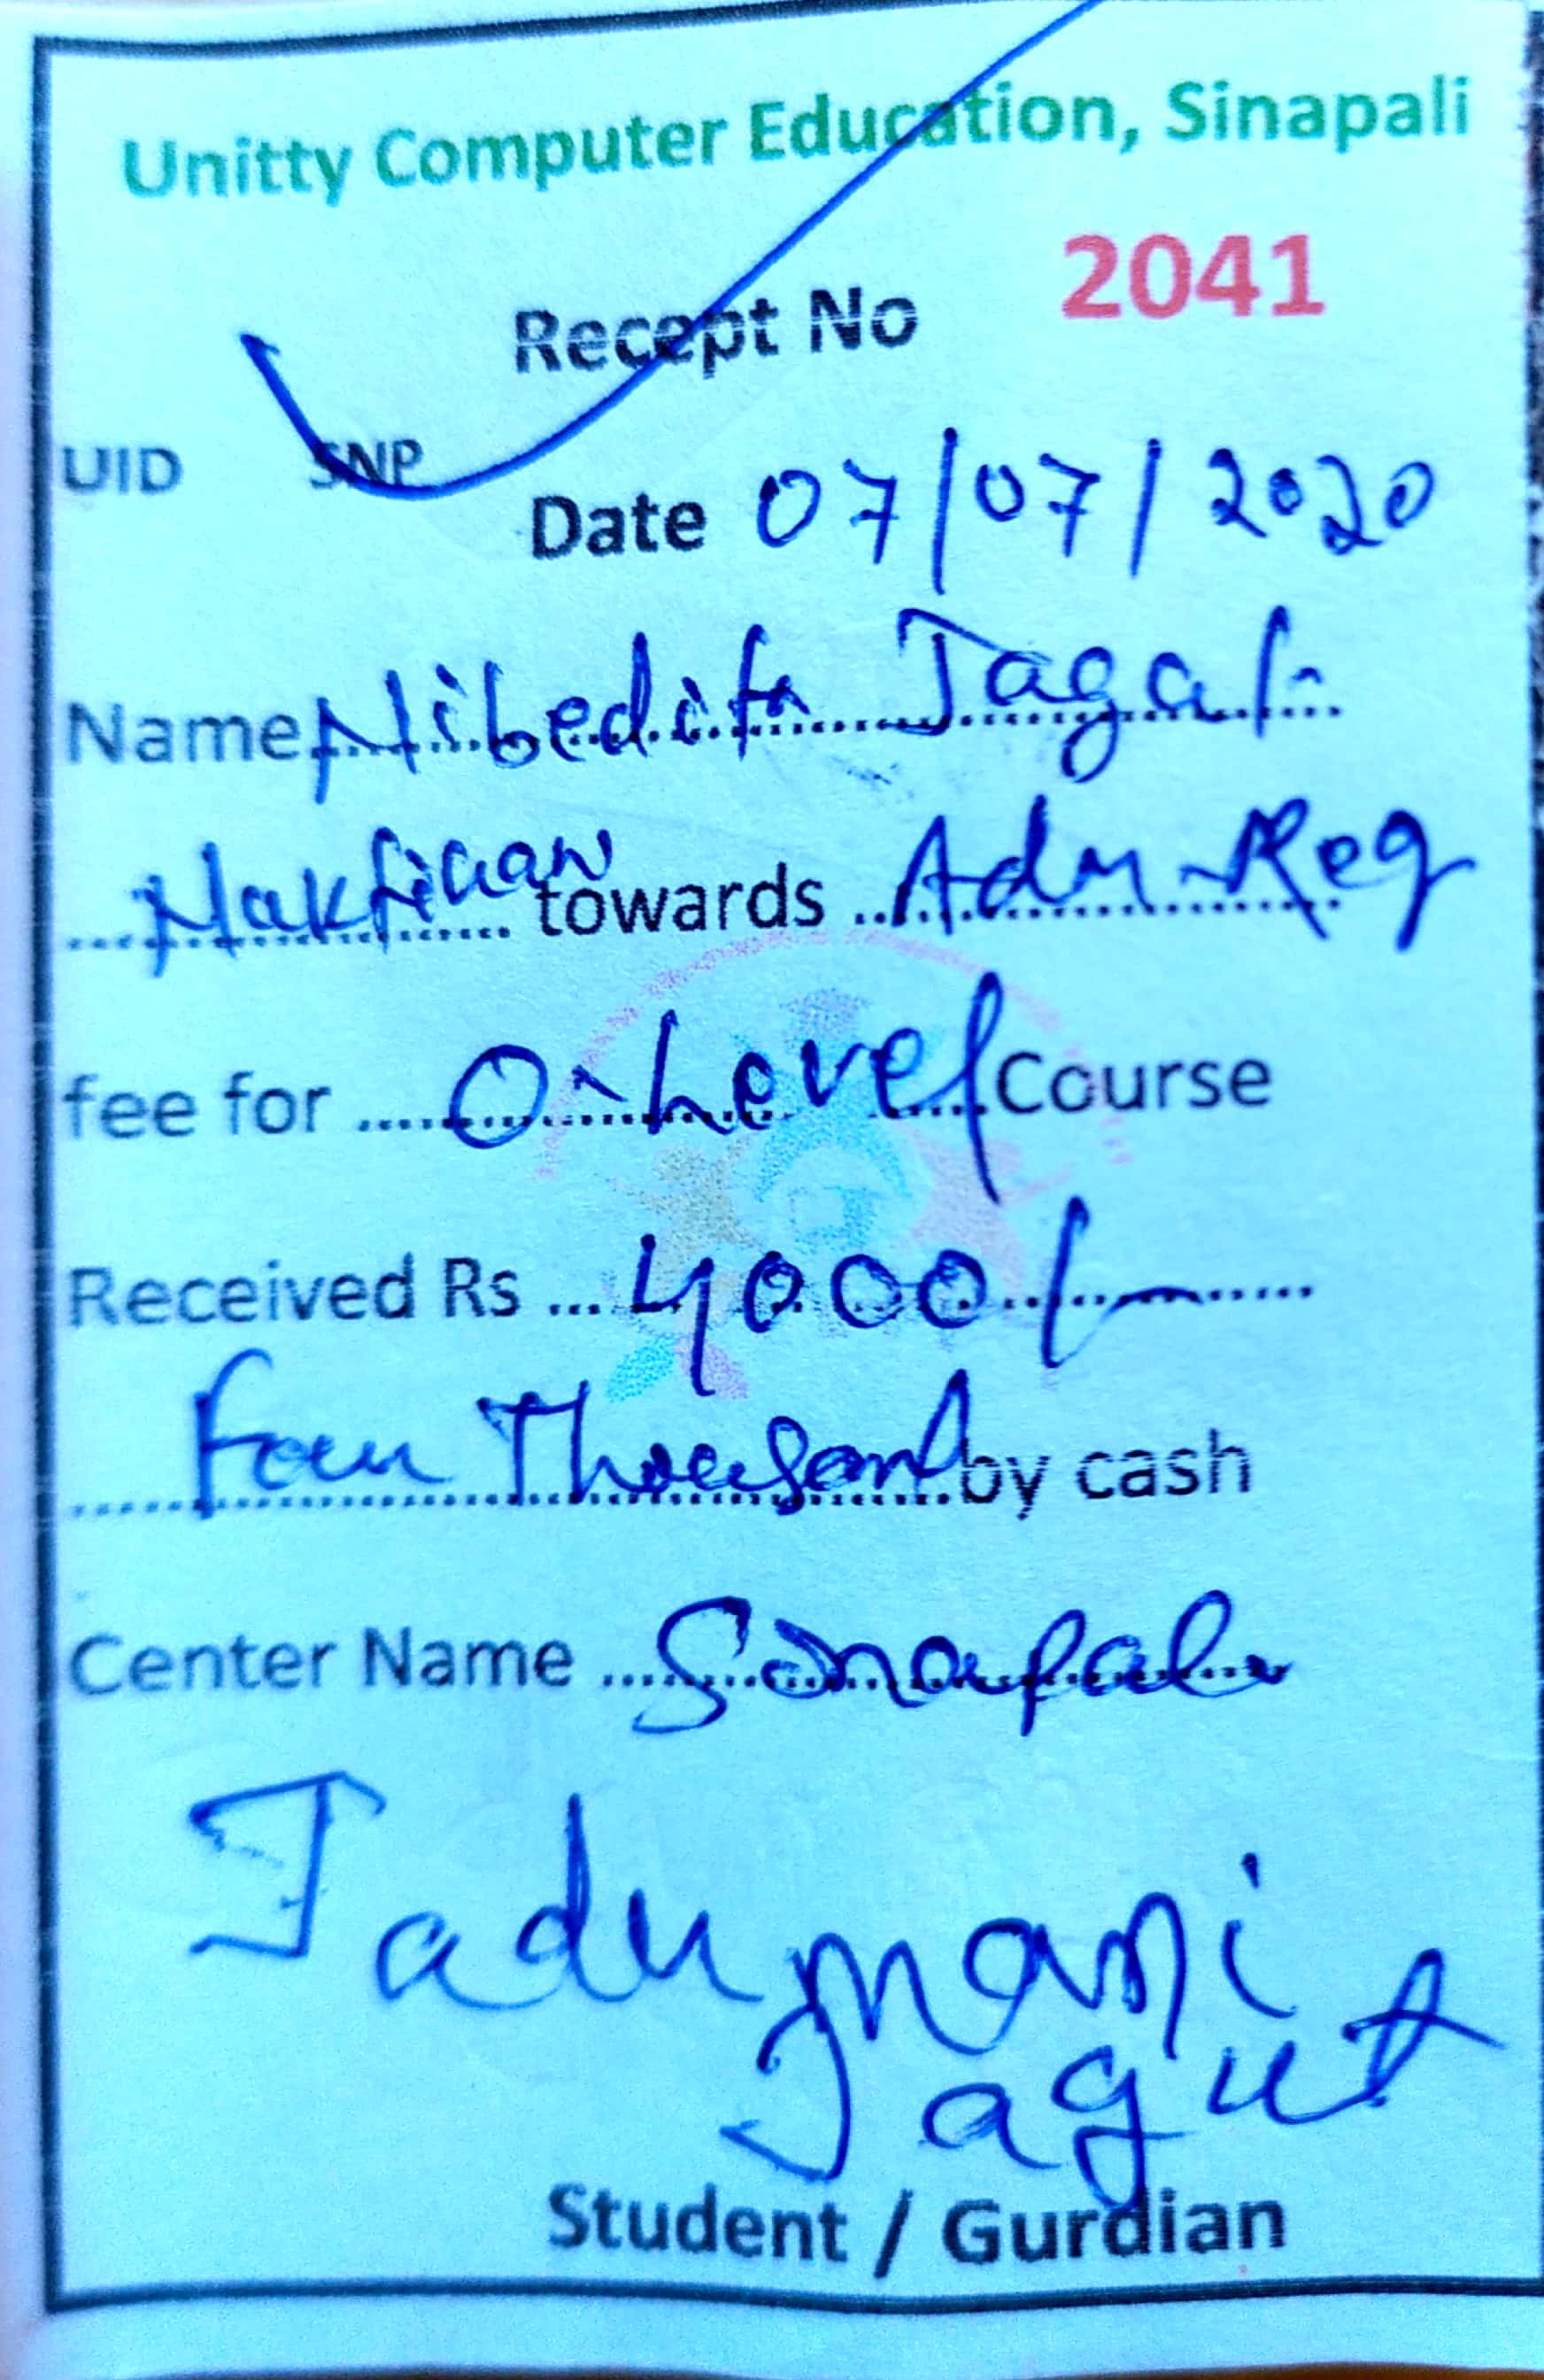 Unitty Computer Education, Sinapali
Recept No 2041
UID SNP
Date 07/07/2020
Name Nibedita Jagat
towards Adm-Reg
fee for O-Level Course
Received Rs 4000/-
Four Thousand by cash
Center Name Sinapali
Jadumani
Jagat
Student / Gurdian